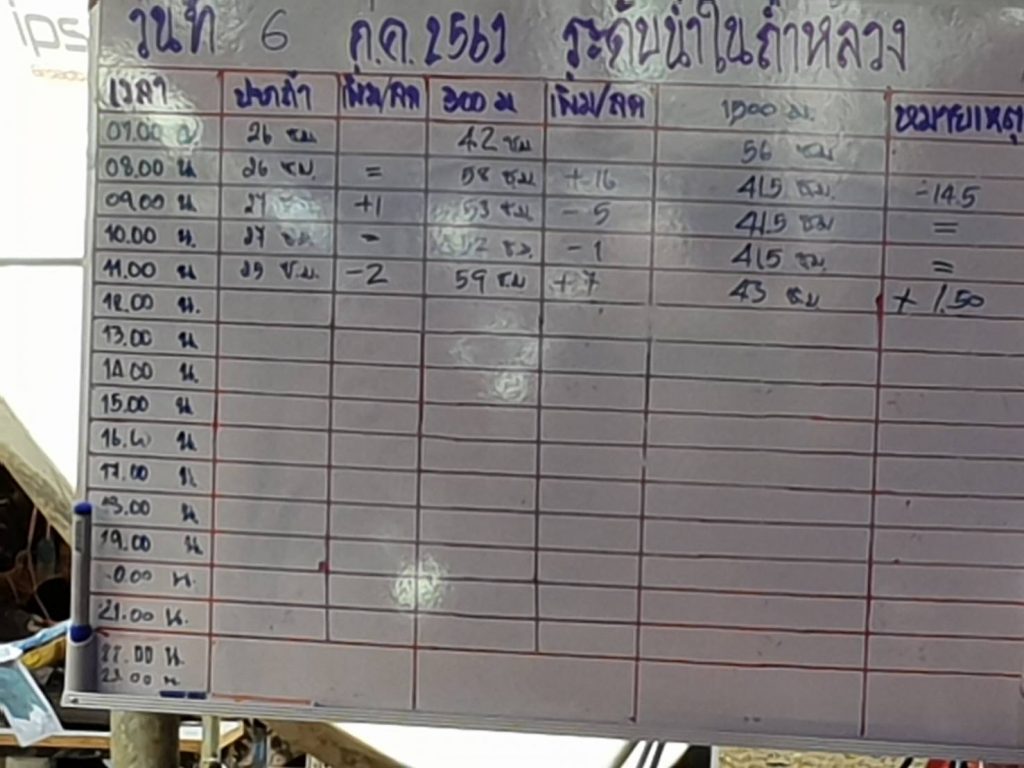 ips
วันที่ 6 ก.ค. 2561 ระดับน้ำในถ้ำหลวง
เวลา ปากถ้ำ เพิ่ม/ลด 300 ม เพิ่ม/ลด 1500 ม. หมายเหตุ
07.00 น 26 ซม. 42 ซม 56 ซม
08.00 น 26 ซม. = 58 ซม +16 41.5 ซม. -14.5
09.00 น 27 ซม +1 53 ซม - 5 41.5 ซม =
10.00 น. 27 ซม - 52 ซ.ม. - 1 41.5 ซม. =
11.00 น 25 ซ.ม. -2 59 ซ.ม +7 43 ซ.ม + 1.50
12.00 น.
13.00 น.
14.00 น.
15.00 น.
16. น
17.00 น
18.00 น
19.00 น
0.00 น.
21.00 น.
22.00 น.
23.00 น